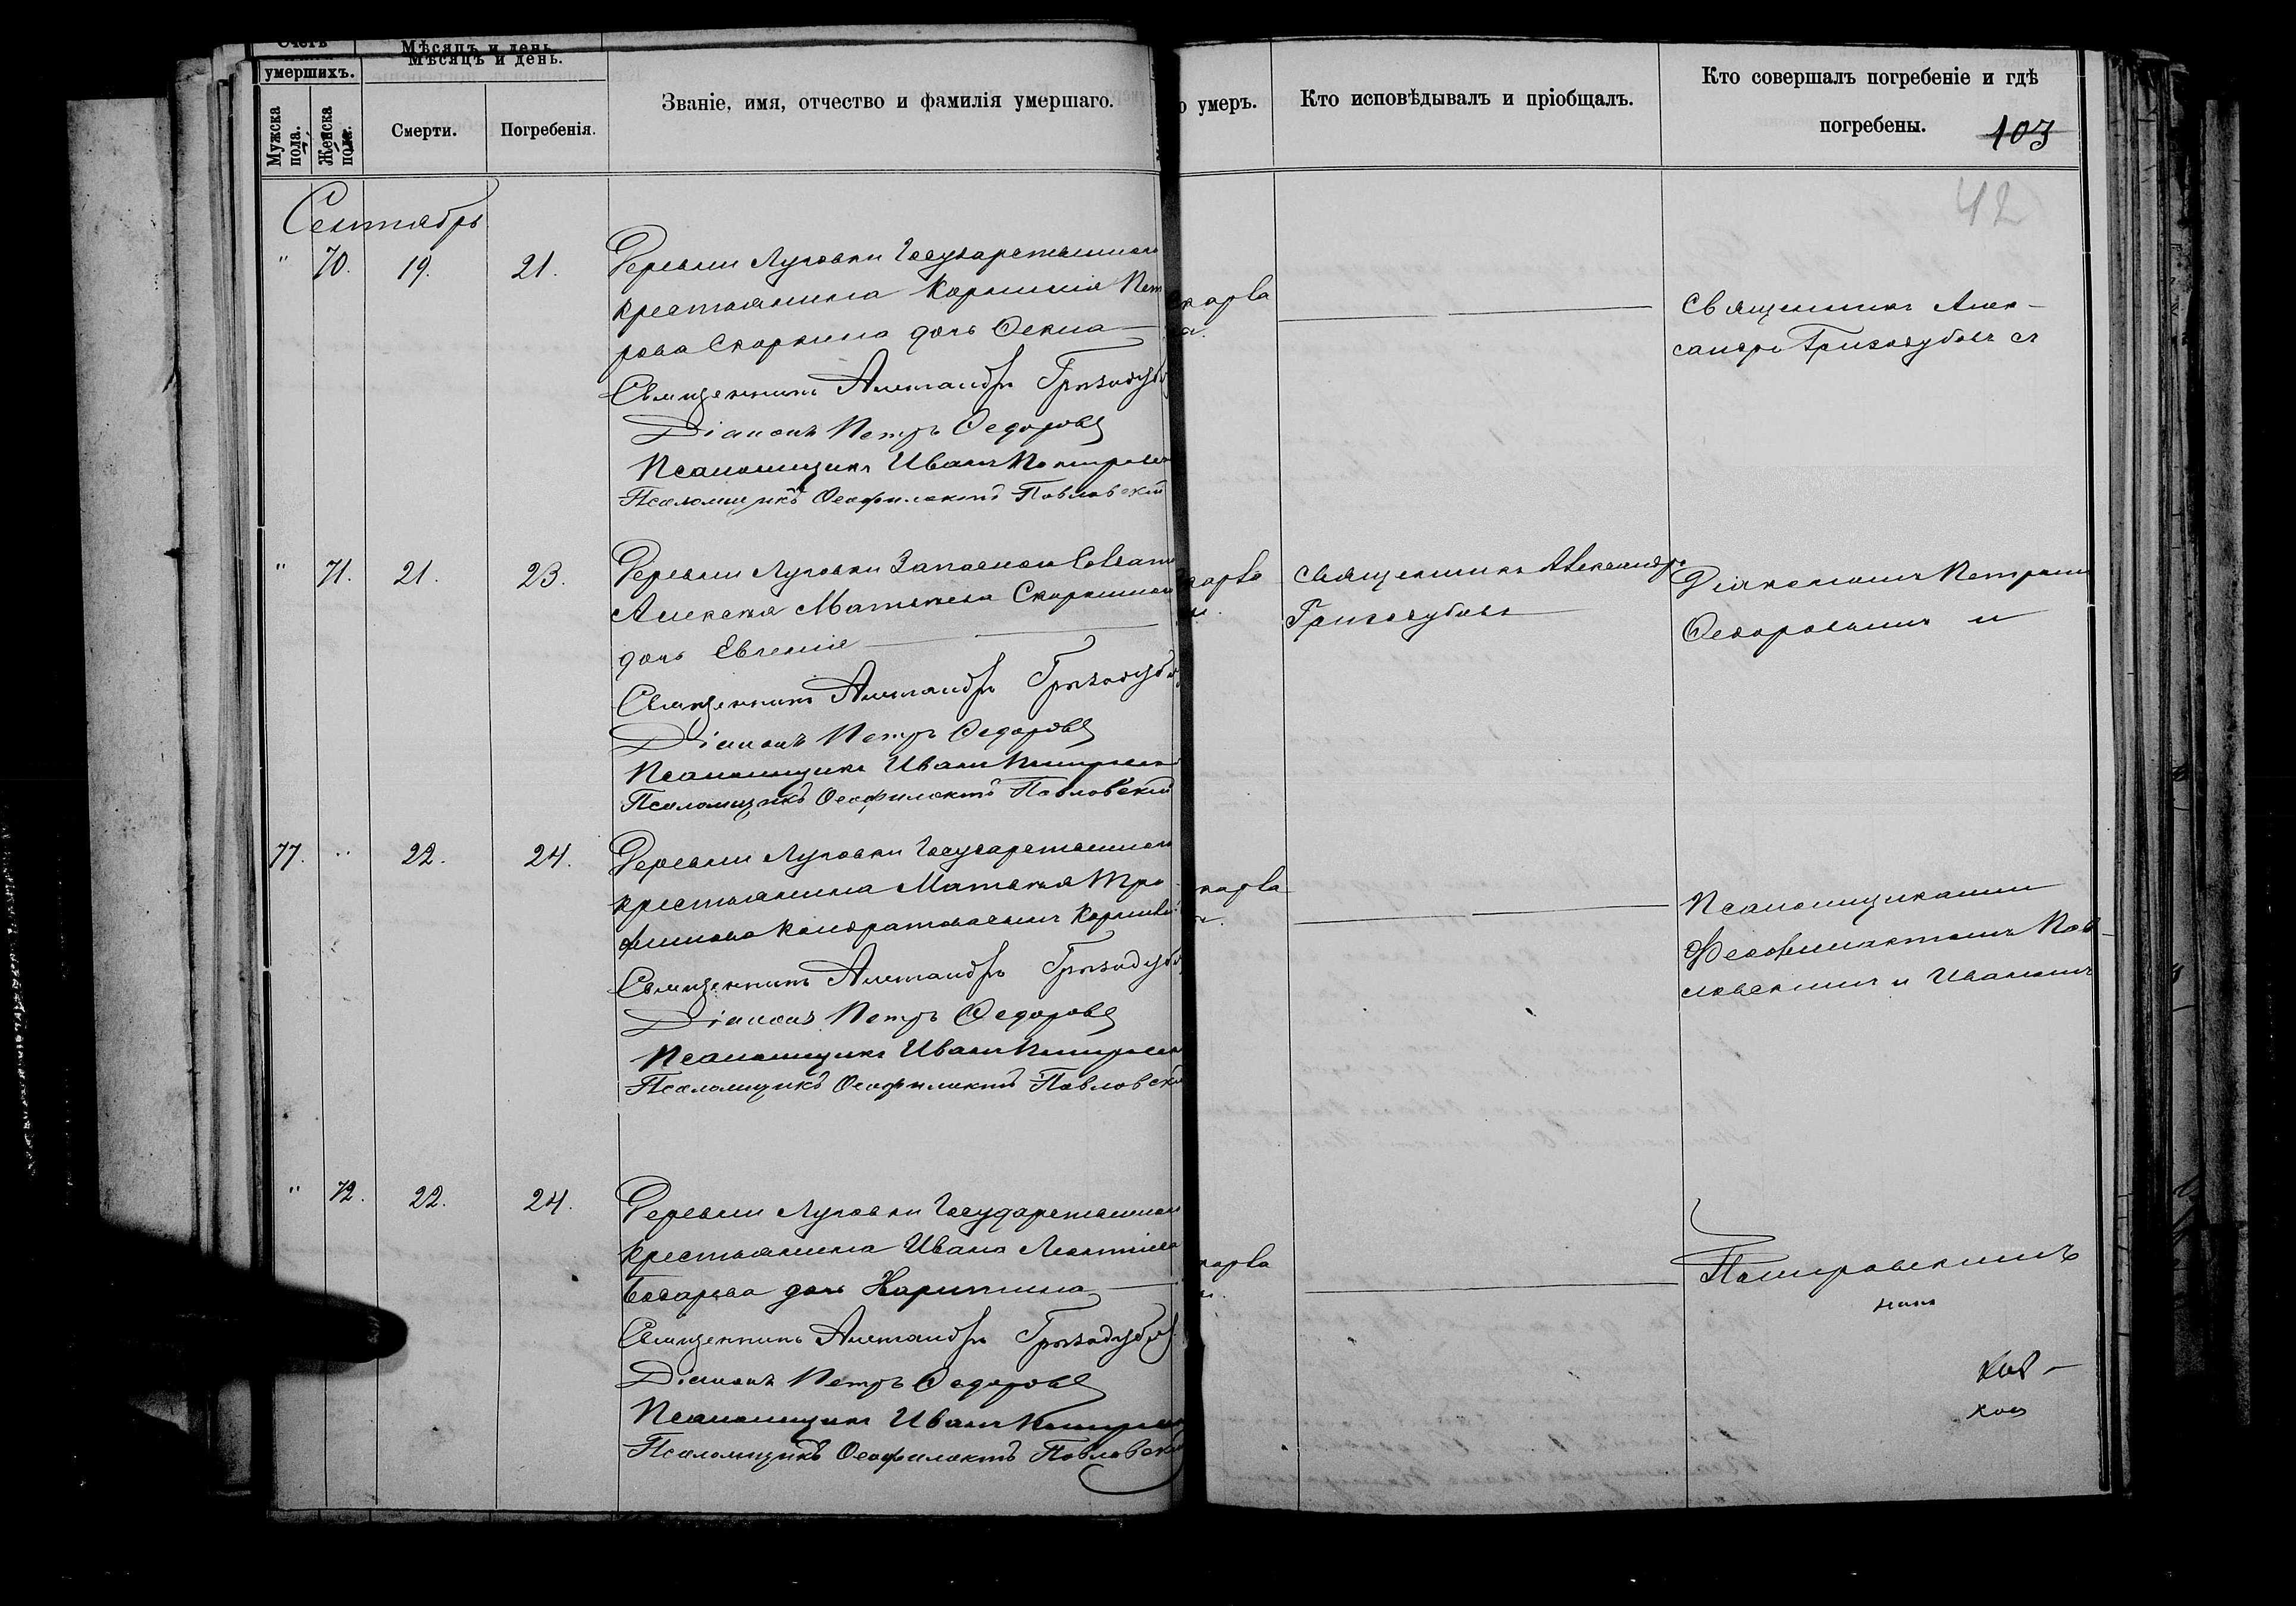 Счетъ
умершихъ.
Мѣсяцъ и день.
Мѣсяцъ и день.
Мужска пола.
Женска пола.
Смерти.
Погребенія.
Званіе, имя, отчество и фамилія умершаго.
о умеръ.
Кто исповѣдывалъ и пріобщалъ.
Кто совершалъ погребеніе и гдѣ
погребены.
103
42
Сентябрь
" 70. 19. 21.
Деревни Луговки Государственнаго
крестьянина Корнилія Пет
рова Скоркина дочь Фекла
Священникъ Александръ Гризодубов
Діаконъ Петръ Федоровъ
Псаломщикъ Иванъ
Псаломщикъ Феофилактъ Павловскій
Священникъ Алек-
сандръ Гризодубовъ съ
" 71. 21. 23.
Деревни Луговки Запаснаго Солдата
Алексея Матвеева Скоркина
дочь Евгенія
Священникъ Александръ Гризодубов
Діаконъ Петръ Федоровъ
Псаломщикъ Иванъ
Псаломщикъ Феофилактъ Павловскій
Священникъ Александръ
Гризодубовъ
Діакономъ Петромъ
Федоровымъ и
77. " 22. 24.
Деревни Луговки Государственнаго
крестьянина Матвея Тро
фимова сынъ Корнилій
Священникъ Александръ Гризодубов
Діаконъ Петръ Федоровъ
Псаломщикъ Иванъ
Псаломщикъ Феофилактъ Павловскі
Псаломщиками
Феофилактомъ Пав-
ловскимъ и Иваномъ
" 72. 22. 24.
Деревни Луговки Государственнаго
крестьянина Ивана Леонтіева
дочь Харитина
Священникъ Александръ Гризодубов
Діаконъ Петръ Федоровъ
Псаломщикъ Иванъ
Псаломщикъ Феофилактъ Павловскі